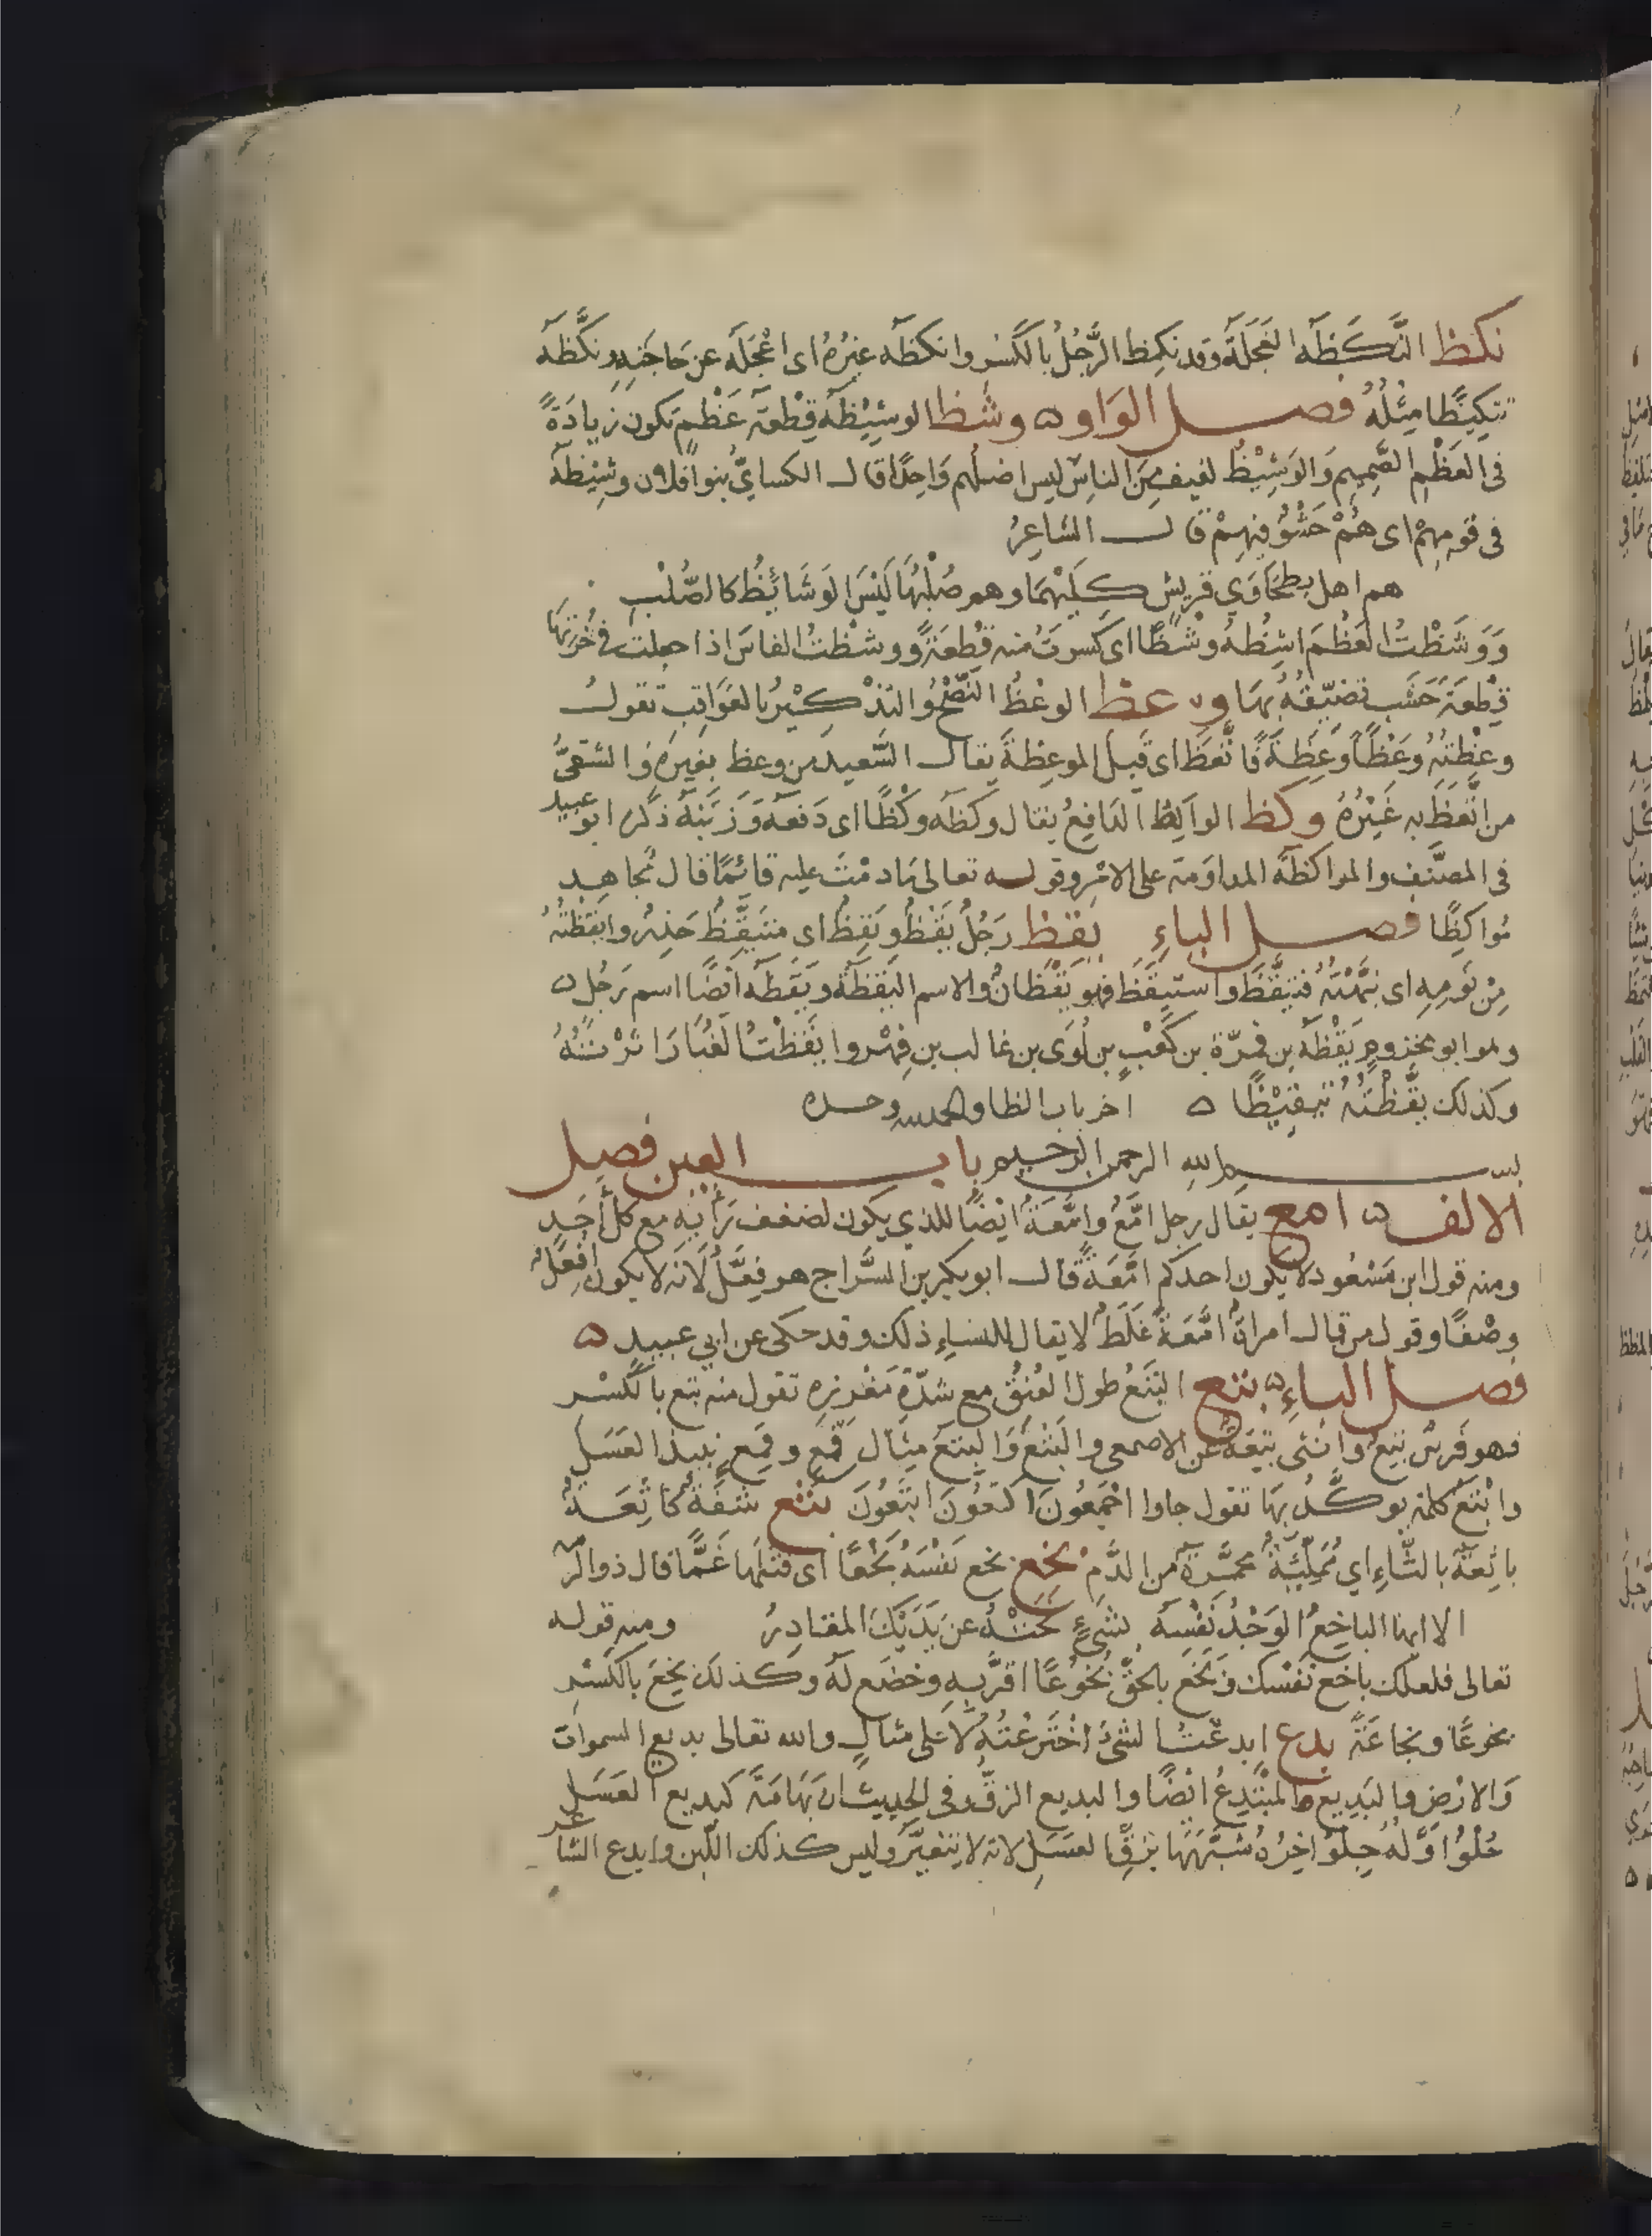 نكظ النَّكَظَة العَجَلَة وقد نكِظ الرَّجُلُ بالكَسْر وانكظه غيْرُهُ اى اعْجَلَه عن حَاجَتِهِ ونكَّظَه
تنكِيظًا مِثْلُهُ فصل الوَاو ه وشظ الوشِيْظَه قِطْعَة عَظْم تكون زيادَةً
فى العَظْمِ الصَّمِيمِ وَالوَشِيْظُ لفيف مِنَ الناسِ ليس اصْلهم وَاحِدًا قال الكساىُّ بنوا فلان وشِيْظَة
فى قومِهِمْ اى هُمْ حَشْوٌ فيهِمْ قال الشاعِرُ
هم اهل بطحَاوَي قريش كِلَيْهِمَا وهم صُلْبُهَا لَيْسَ الوَشَائِظُ كالصُّلْبِ
وَوَشَظْتُ العَظْمَ اشِظُهُ وَشْظًا اى كَسَرتُ منه قِطعَةً ووشظتُ الفاسَ اذا جعلت فى خُرْتِهَا
قِطعَةَ خَشَب تضيّقُهُ بِهَا وعظ الوعْظُ النُّصْحُ والتذْكيْرُ بالعَوَاقِبِ تقول
وعظْتُهُ وَعْظًا وَعِظَةً فَاتَّعَظَ اى قَبِلَ الموعِظَةَ يقال السَّعِيد من وعظ بغيرِهِ والشَّقِىُّ
من اتَّعَظَ بِه غَيْرُهُ وكظ الواكِظ الدَافِعُ يقال وكظَه وكْظًا اى دَفَعَه وَزَبَنَه ذكَرَه ابو عبيد
فى المصَنَّف والمواكظَة المداوَمة على الامْرِ وقوله تعالى مَا دمْتَ عليه قائِمًا قال مُجاهِد
مُواكِظًا فصل الياءِ يقظ رَجُلٌ يَقُظٌ ويَقِظٌ اى متَيَقِّظٌ حَذِرٌ وايقَظْتُهُ
مِنْ نَومِهِ اى نبَّهْتهُ فتيقَّظَ واستيقَظَ فهو يَقْظَانُ والاسم اليَقظَة ويَقَظَه ايضًا اسم رَجُلٍ ه
وهوابو مخزومٍ يَقْظَة بن مُرّة بن كَعْبِ بن لُوَى بن غالب بن فِهْر وايقَظْتُ الغُبَارَ اثَرْتُهُ
وكذلك يقَّظْتهُ تيقيْظًا ه اخر باب الظا والحمد لله وحده
بسم الله الرحمن الرحيم باب العين فصل
الالف ه امع يقال رجل امَّعٌ وامَّعَةٌ ايضًا للذي يكون لضعف رَأْيِهِ مع كل أَحَدٍ
ومنه قول ابن مَسْعُود لا يكون احدكم امَّعَةً قال ابو بكر بن السَّراج هو فِعَّلٌ لأنه لا يكون افعَل
وصْفًا وقول من قال امراة امَّعَة غَلَط لا يقال للنساء ذلك وقد حكى عن ابي عبيد ه
فصل الباءِ ه بتع البَتَعُ طول العُنُقِ مع شدّةِ مَغرِزِه تقول منه بتع بالكَسْر
فهو فَرسٌ بَتِعٌ وانثى بَتِعَةٌ عن الاصمعى والبِتْعُ وَالبِتَعُ مِثال قِمْعٍ وقِمَعٍ نبيذ العَسَلِ
وابْتَعُ كلمة يوكَّدُ بِهَا تقول جاوا اجْمَعُونَ اكتَعُونَ ابتَعُونَ بثع شفَةٌ كاثِعَةٌ
باثِعَة بالثاءِ اي مُمتلِئَةٌ محمَرَّة من الدَّمِ بخع بخع نَفْسَهُ بَخْعًا اى قتلها غمًّا قال ذو الرمه
الا ايهذا الباخِعُ الوَجْدُ نَفْسَه بشَىْءٍ نحَتْهُ عن يَدَيْكَ المقادِرُ ومنه قوله
تعالى فلعلّك باخع نَفْسك وَبَخَعَ بالحقِّ بُخُوعًا اقرَّ بِهِ وخضَع لَه وكذلك بخِعَ بالكَسْرِ
بخوعًا وبخاعَةً بدع ابدعْتُ الشىْءَ اخْتَرعْتُهُ لا على مثالٍ والله تعالى بديع السموات
وَالارْض والبَدِيع المبْتدِعُ ايْضًا والبديع الزقّ وفى الحديث ان تِهَامَة كبديع العَسَلِ
حُلْوٌ اوَّلُه حِلْوٌ اخِرُهُ شَبَّهَهَا بزِقِّ العَسَلِ لانه لا يتغيّر وليس كذلك اللّبن وابدع الشاعر